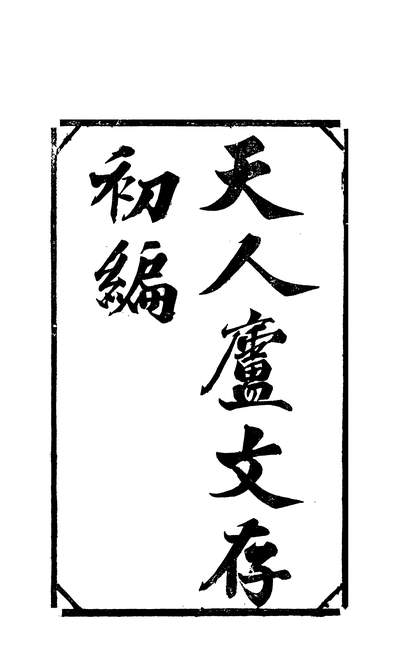 天人廬文存
初編